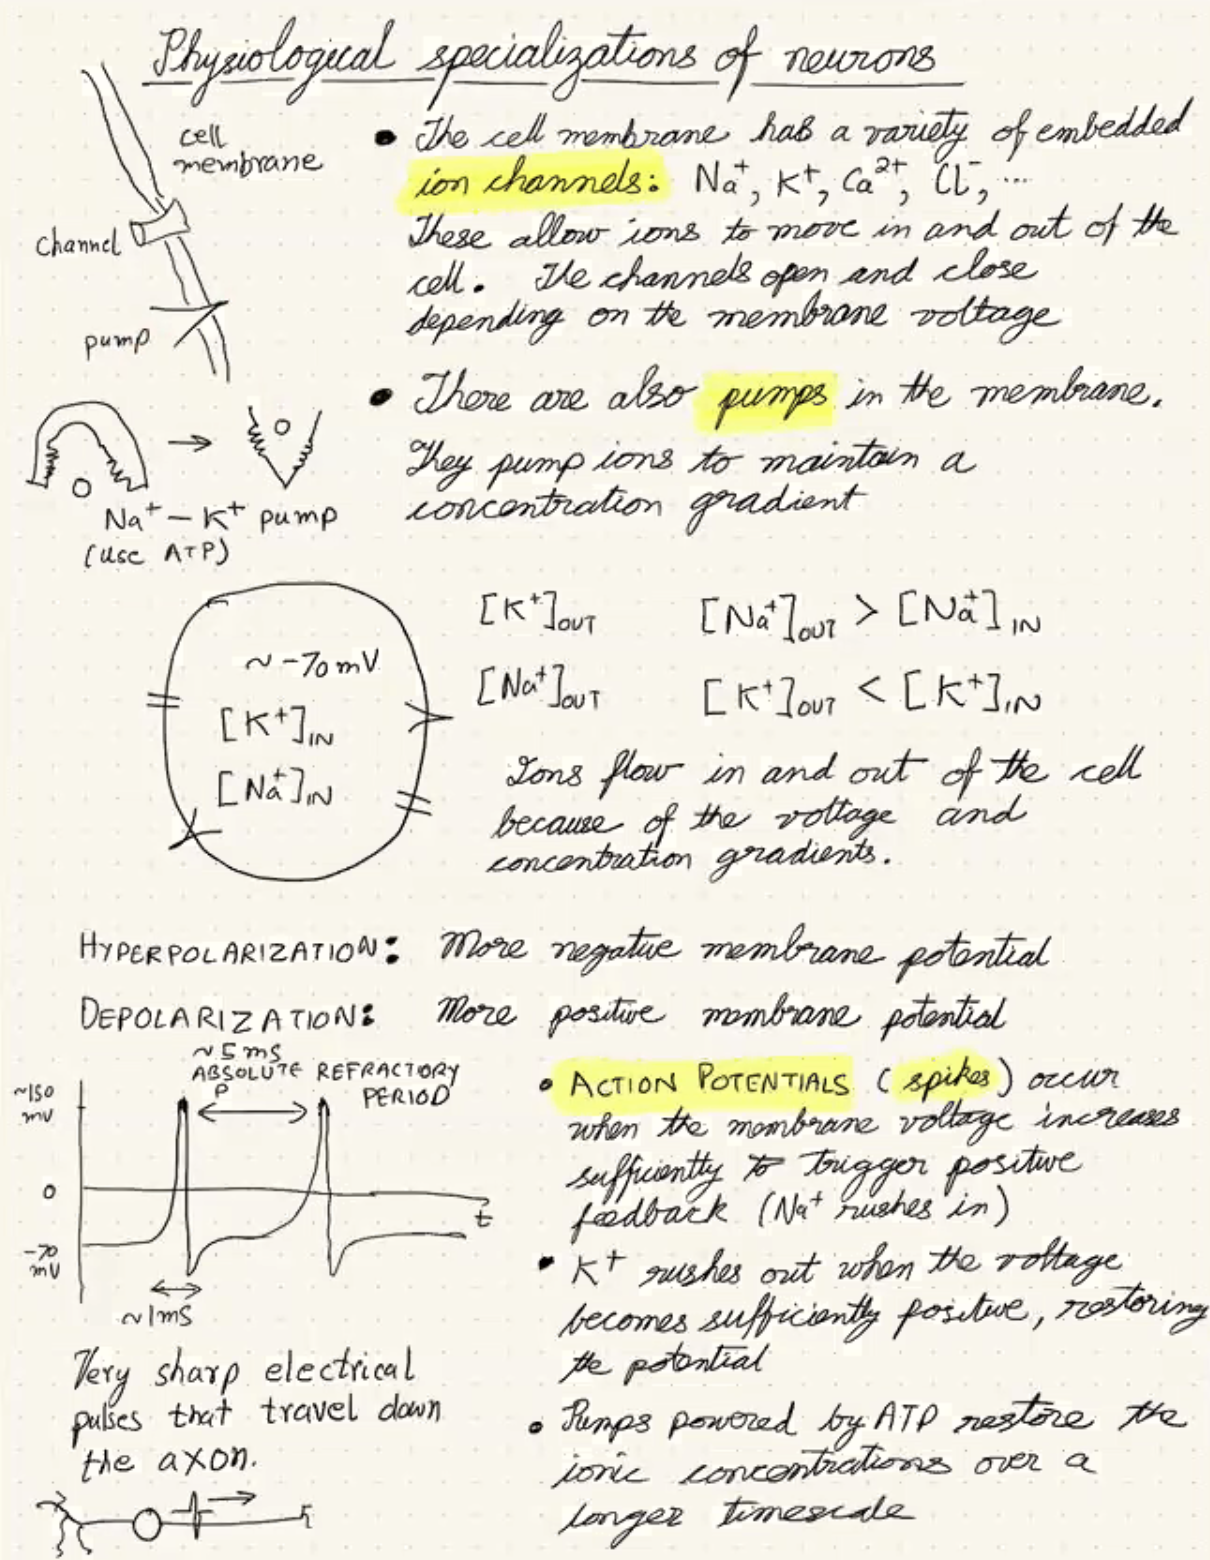 Physiological specializations of neurons
cell
membrane
channel
pump
• The cell membrane has a variety of embedded
ion channels: Na⁺, K⁺, Ca²⁺, Cl⁻, ...
These allow ions to move in and out of the
cell. The channels open and close
depending on the membrane voltage
• There are also pumps in the membrane.
They pump ions to maintain a
concentration gradient
Na⁺ – K⁺ pump
(use ATP)
~ -70 mV
[K⁺]IN
[Na⁺]IN
[K⁺]OUT
[Na⁺]OUT
[Na⁺]OUT > [Na⁺]IN
[K⁺]OUT < [K⁺]IN
Ions flow in and out of the cell
because of the voltage and
concentration gradients.
HYPERPOLARIZATION: More negative membrane potential
DEPOLARIZATION: More positive membrane potential
~5 ms
ABSOLUTE REFRACTORY
PERIOD
P
~150
mV
0
-70
mV
t
~1ms
Very sharp electrical
pulses that travel down
the axon.
• ACTION POTENTIALS (spikes) occur
when the membrane voltage increases
sufficiently to trigger positive
feedback (Na⁺ rushes in)
• K⁺ rushes out when the voltage
becomes sufficiently positive, restoring
the potential
• Pumps powered by ATP restore the
ionic concentrations over a
longer timescale